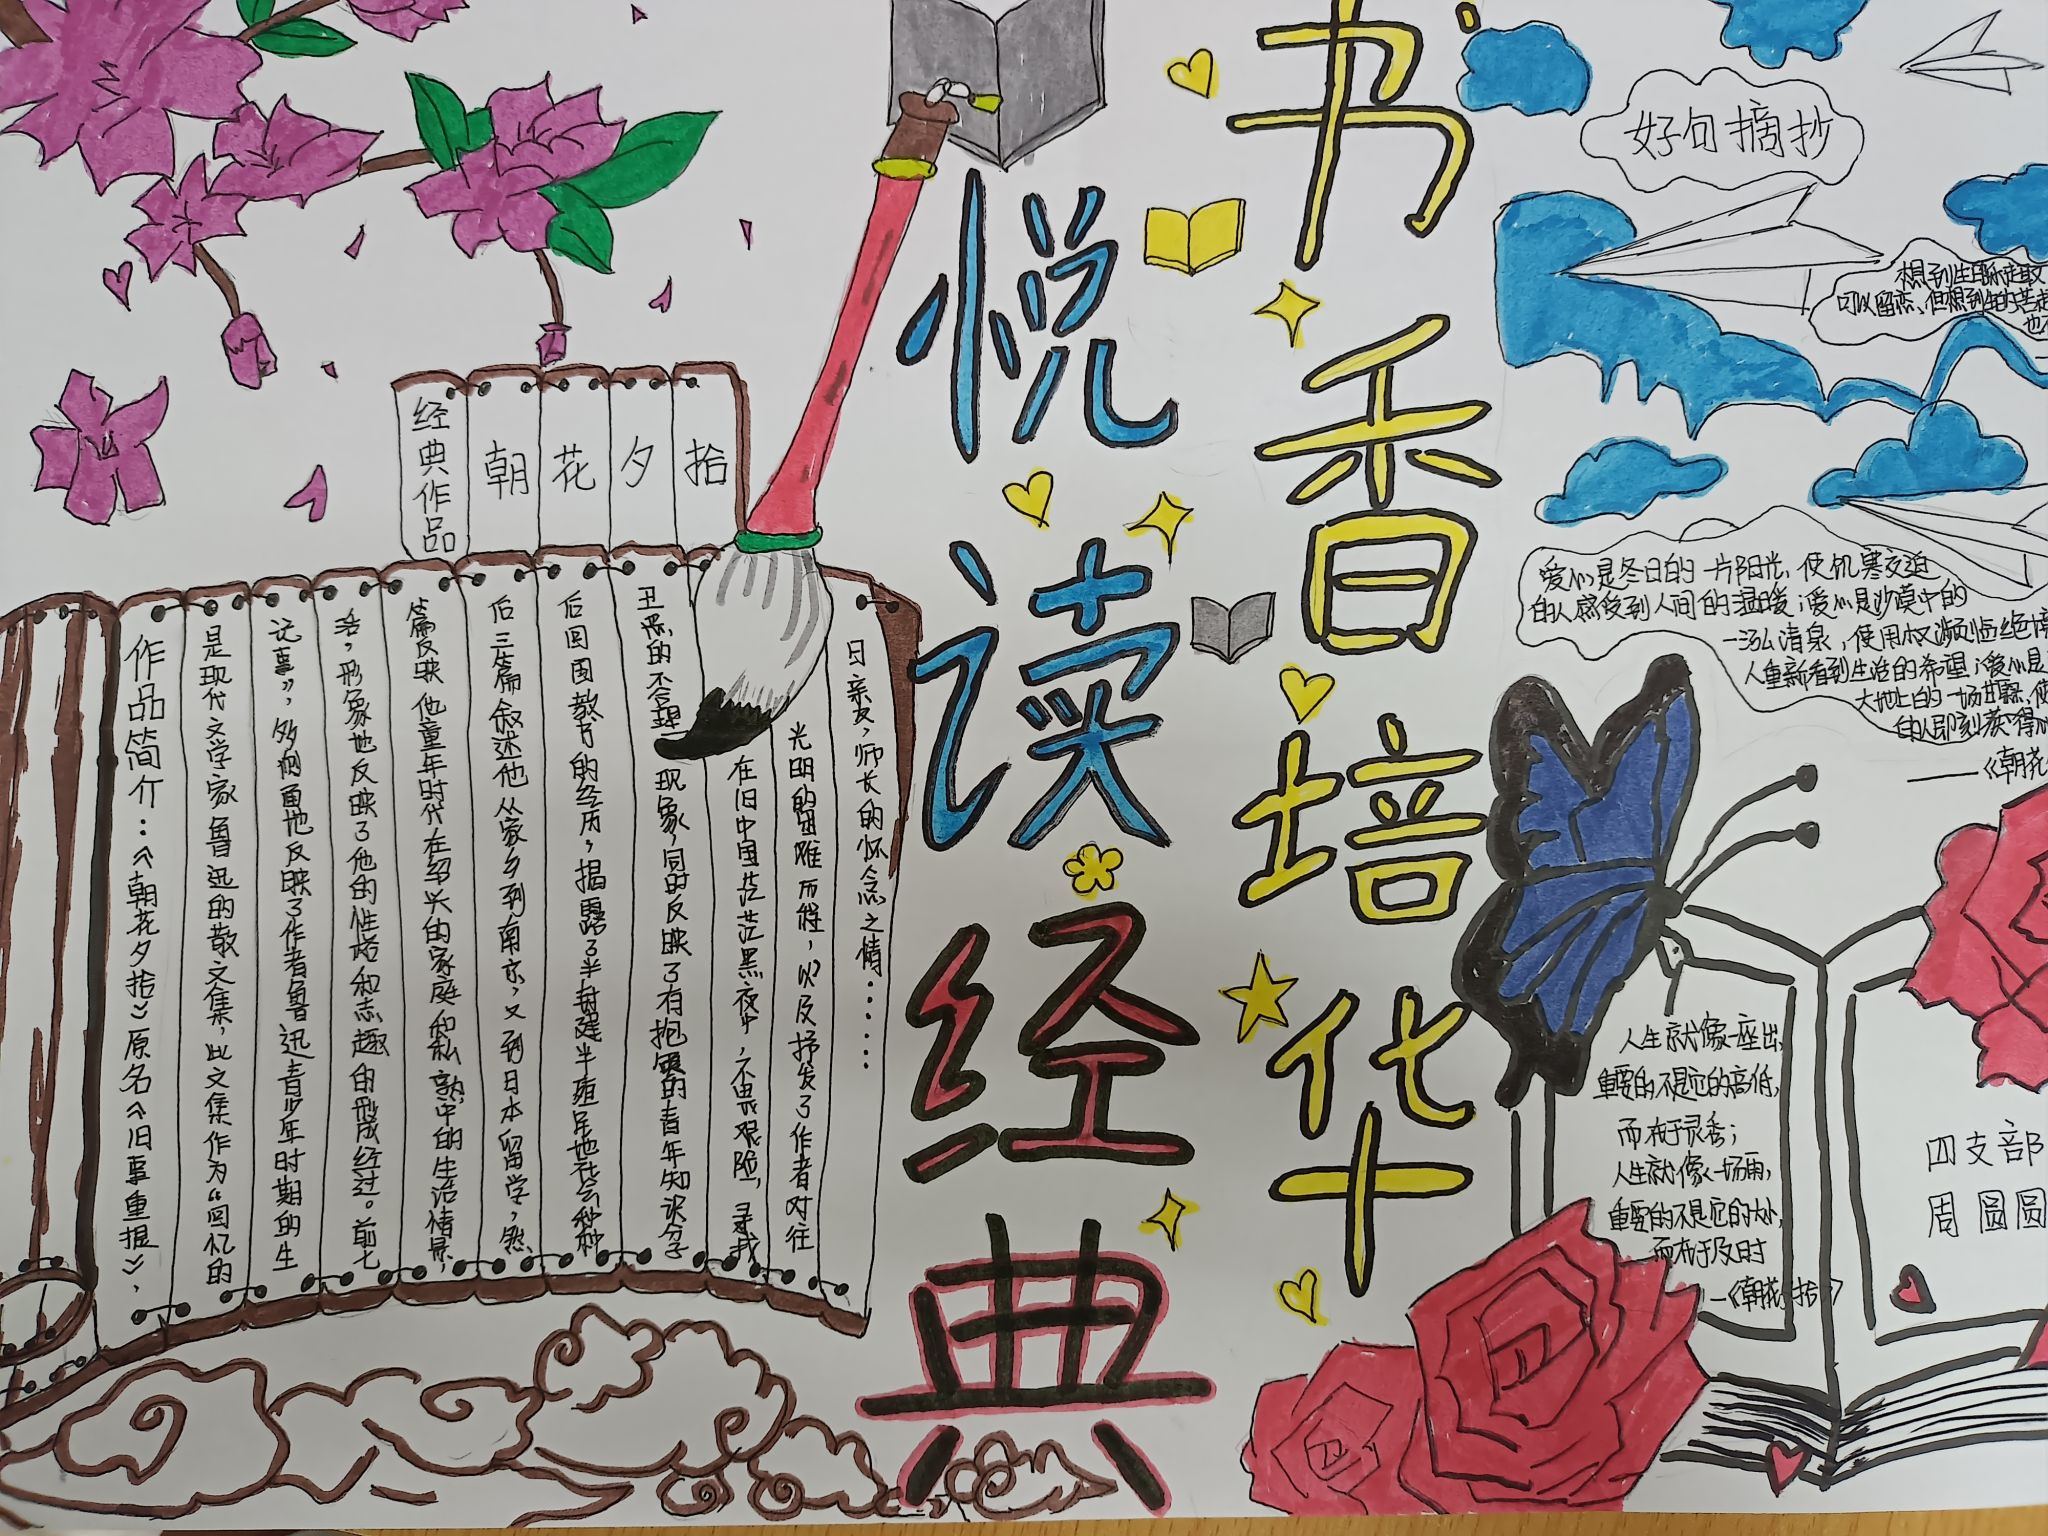 书香培华
悦读经典
经典作品
朝
花
夕
拾
作品简介:《朝花夕拾》原名《旧事重提》,
是现代文学家鲁迅的散文集,此文集作为“回忆的
记事”,多侧面地反映了作者鲁迅青少年时期的生
活,形象地反映了他的性格和志趣的形成经过。前七
篇反映他童年时代在绍兴的家庭和私塾中的生活情景,
后三篇叙述他从家乡到南京,又到日本留学,然
后回国教书的经历,揭露了半封建半殖民地社会种种
丑恶的不合理现象,同时反映了有抱负的青年知识分子
在旧中国茫茫黑夜中,不畏艰险,寻找
光明的困难历程,以及抒发了作者对往
日亲友,师长的怀念之情......
好句摘抄
想到生
可以留恋,但想到生的苦
也
爱心是冬日的一片阳光,使饥寒交迫
的人感受到人间的温暖;爱心是沙漠中的
一泓清泉,使用权濒临绝境
人重新看到生活的希望;爱心是
大地上的一场甘霖,使
的人即刻获得
——《朝花
人生就像一座山,
重要的不是它的高低,
而在于灵秀;
人生就像一场雨,
重要的不是它的大小,
而在于及时
—《朝花夕拾》
四支部
周圆圆